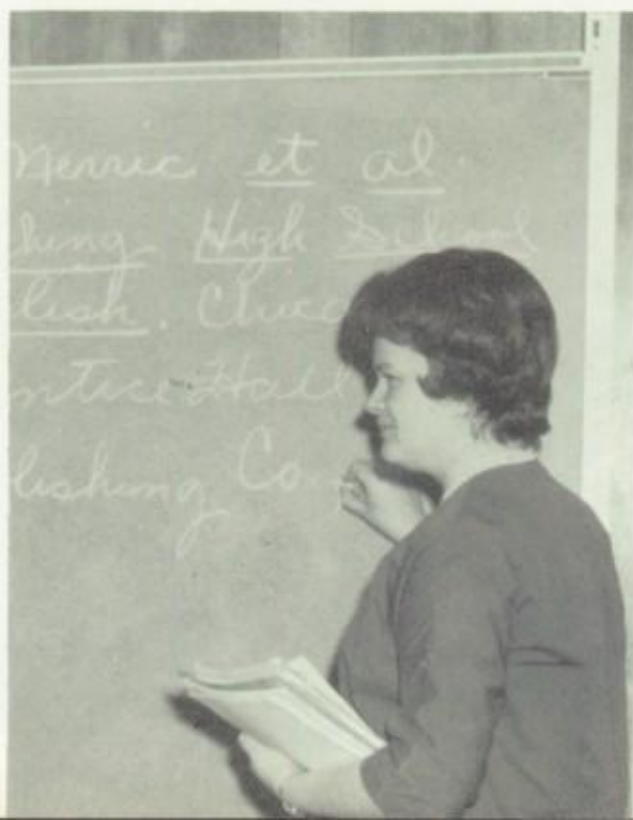 Merric et al.
hing High School
lish. Chica
ntice Hall
lishing Co